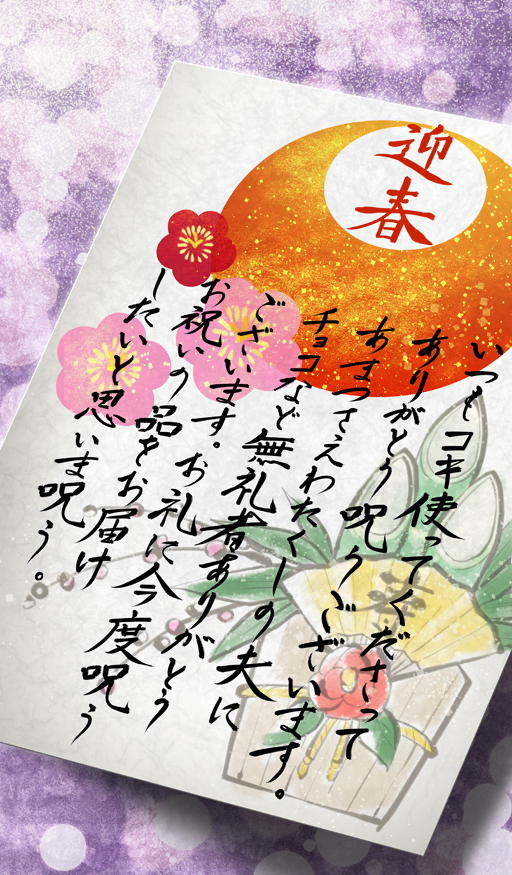 迎
春
いつもコキ使ってくださって
ありがとう呪うございます。
あまつさえわたくしの夫に
チョコなど無礼者ありがとう
ございます。お礼に今度呪う
お祝いの品をお届け
したいと思いま呪う。